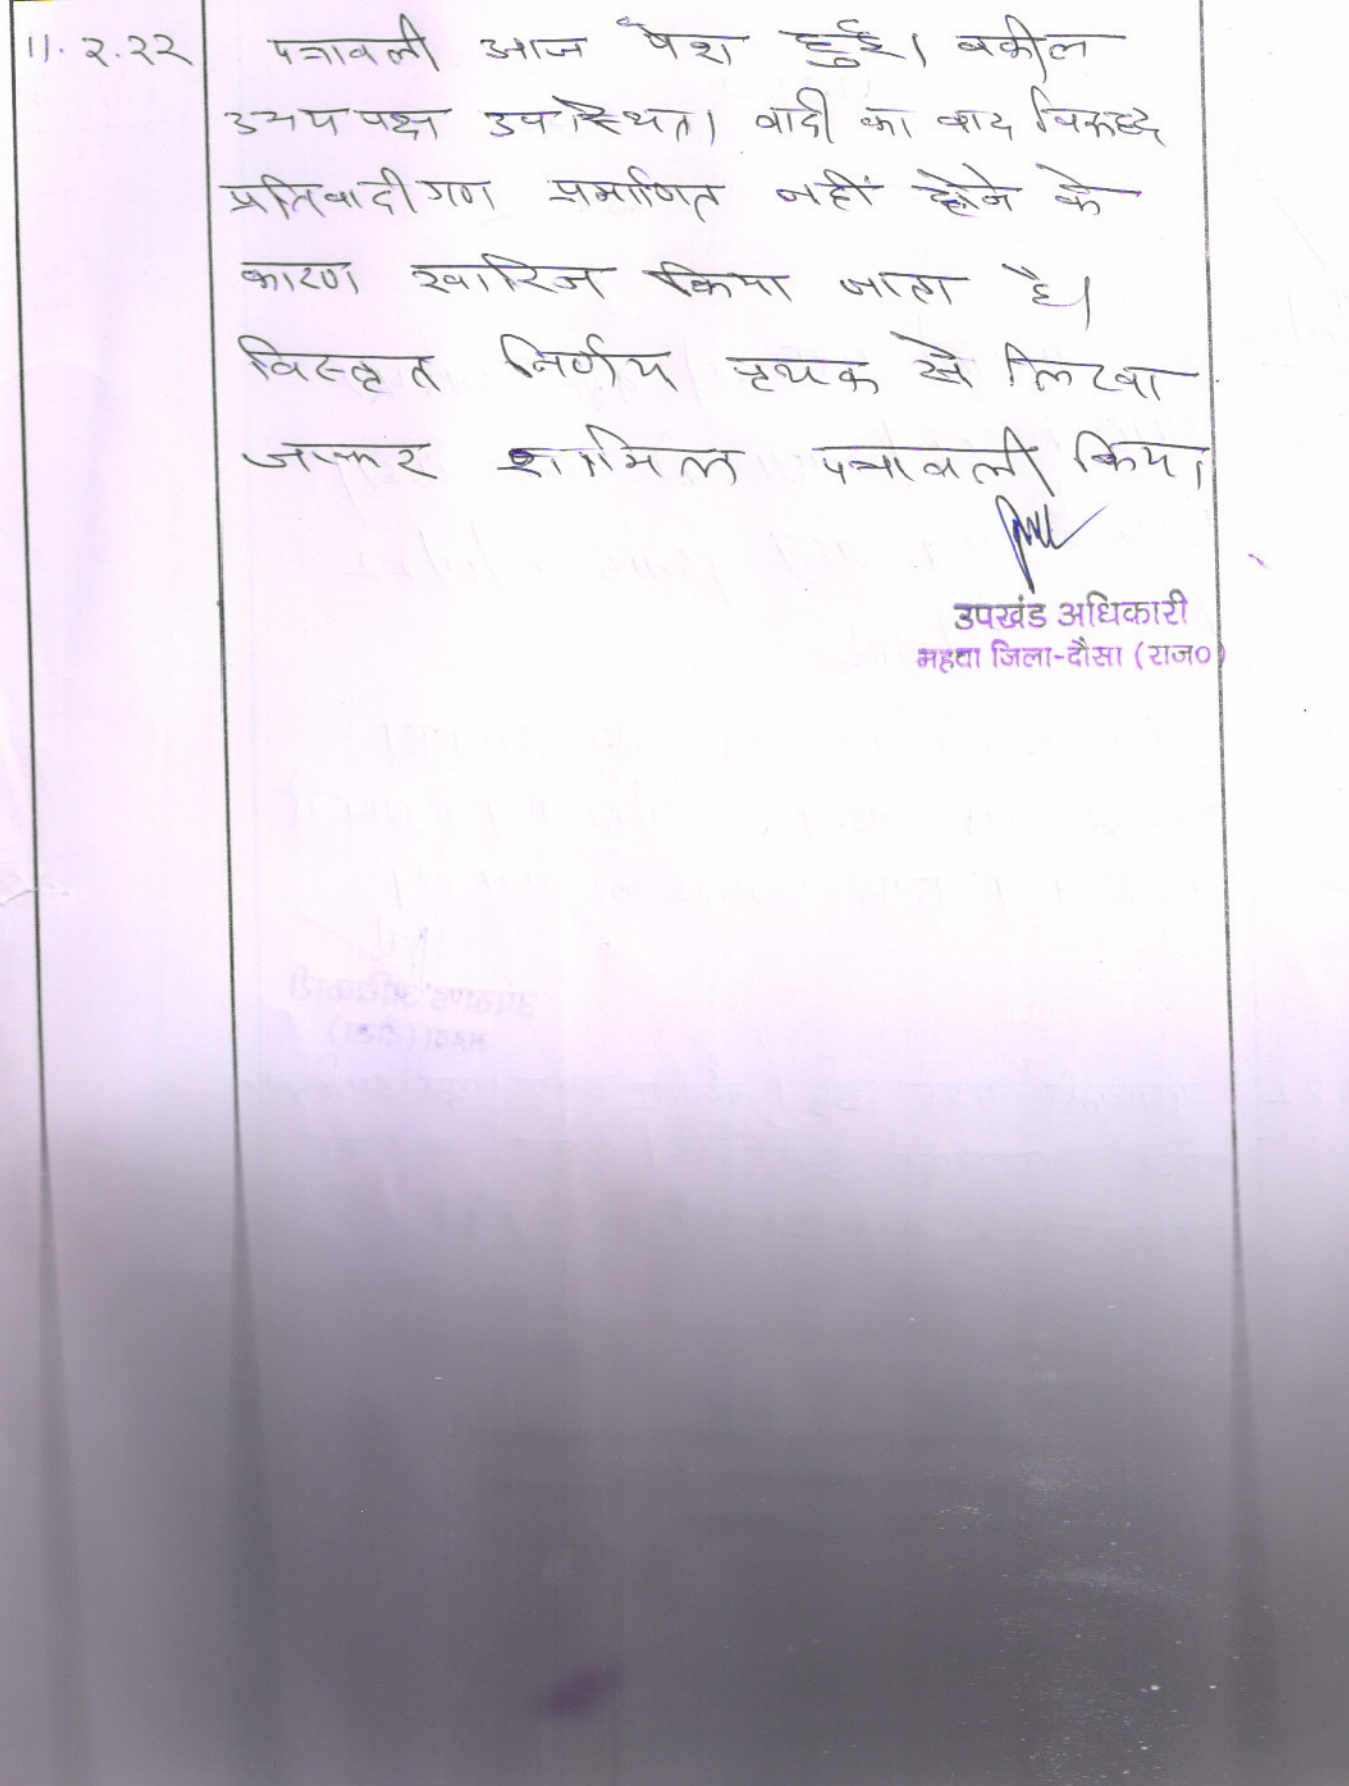 11.2.22 पत्रावली आज पेश हुई। वकील
उभय पक्ष उपस्थित। वादी का वाद विरूद्ध
प्रतिवादीगण प्रमाणित नहीं होने के
कारण खारिज किया जाता है।
विस्तृत निर्णय पृथक से लिखा
जाकर शामिल पत्रावली किया।
उपखंड अधिकारी
महवा जिला-दौसा (राज०)